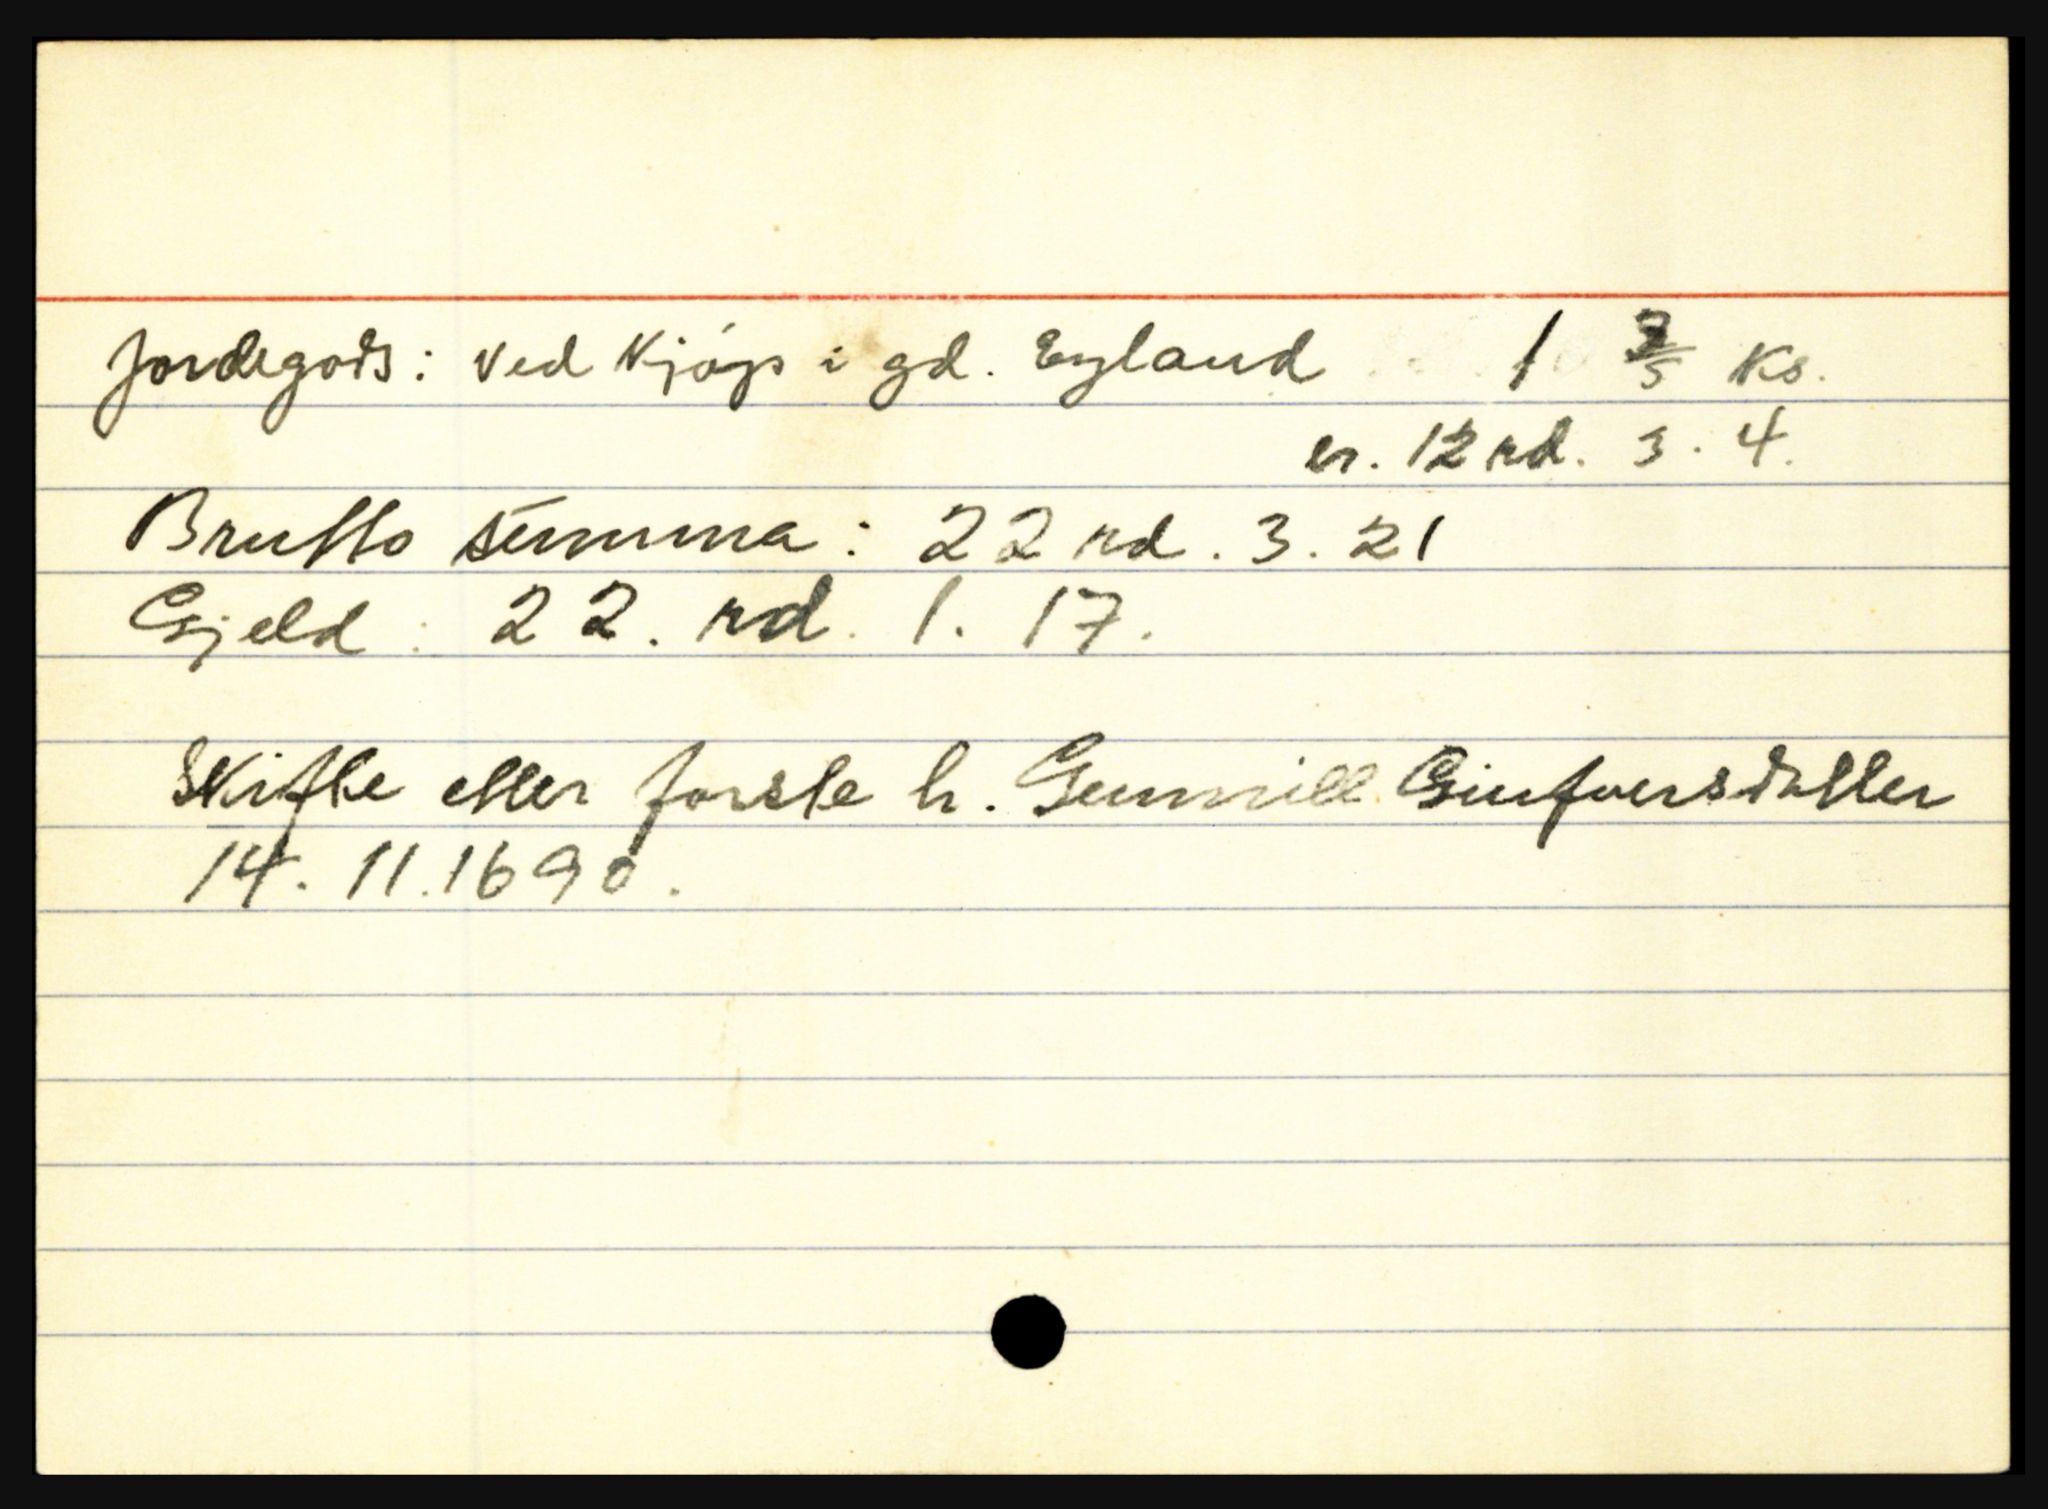 Jordegods: ved Kjøp i gd. Eyland 1 2/5 Ks.
er. 12 rd. 3. 4.
Brutto summa: 22 rd. 3. 21
Gjeld: 22. rd. 1. 17.
Skifte etter første h. Gunnill Giutversdatter
14. 11. 1690.